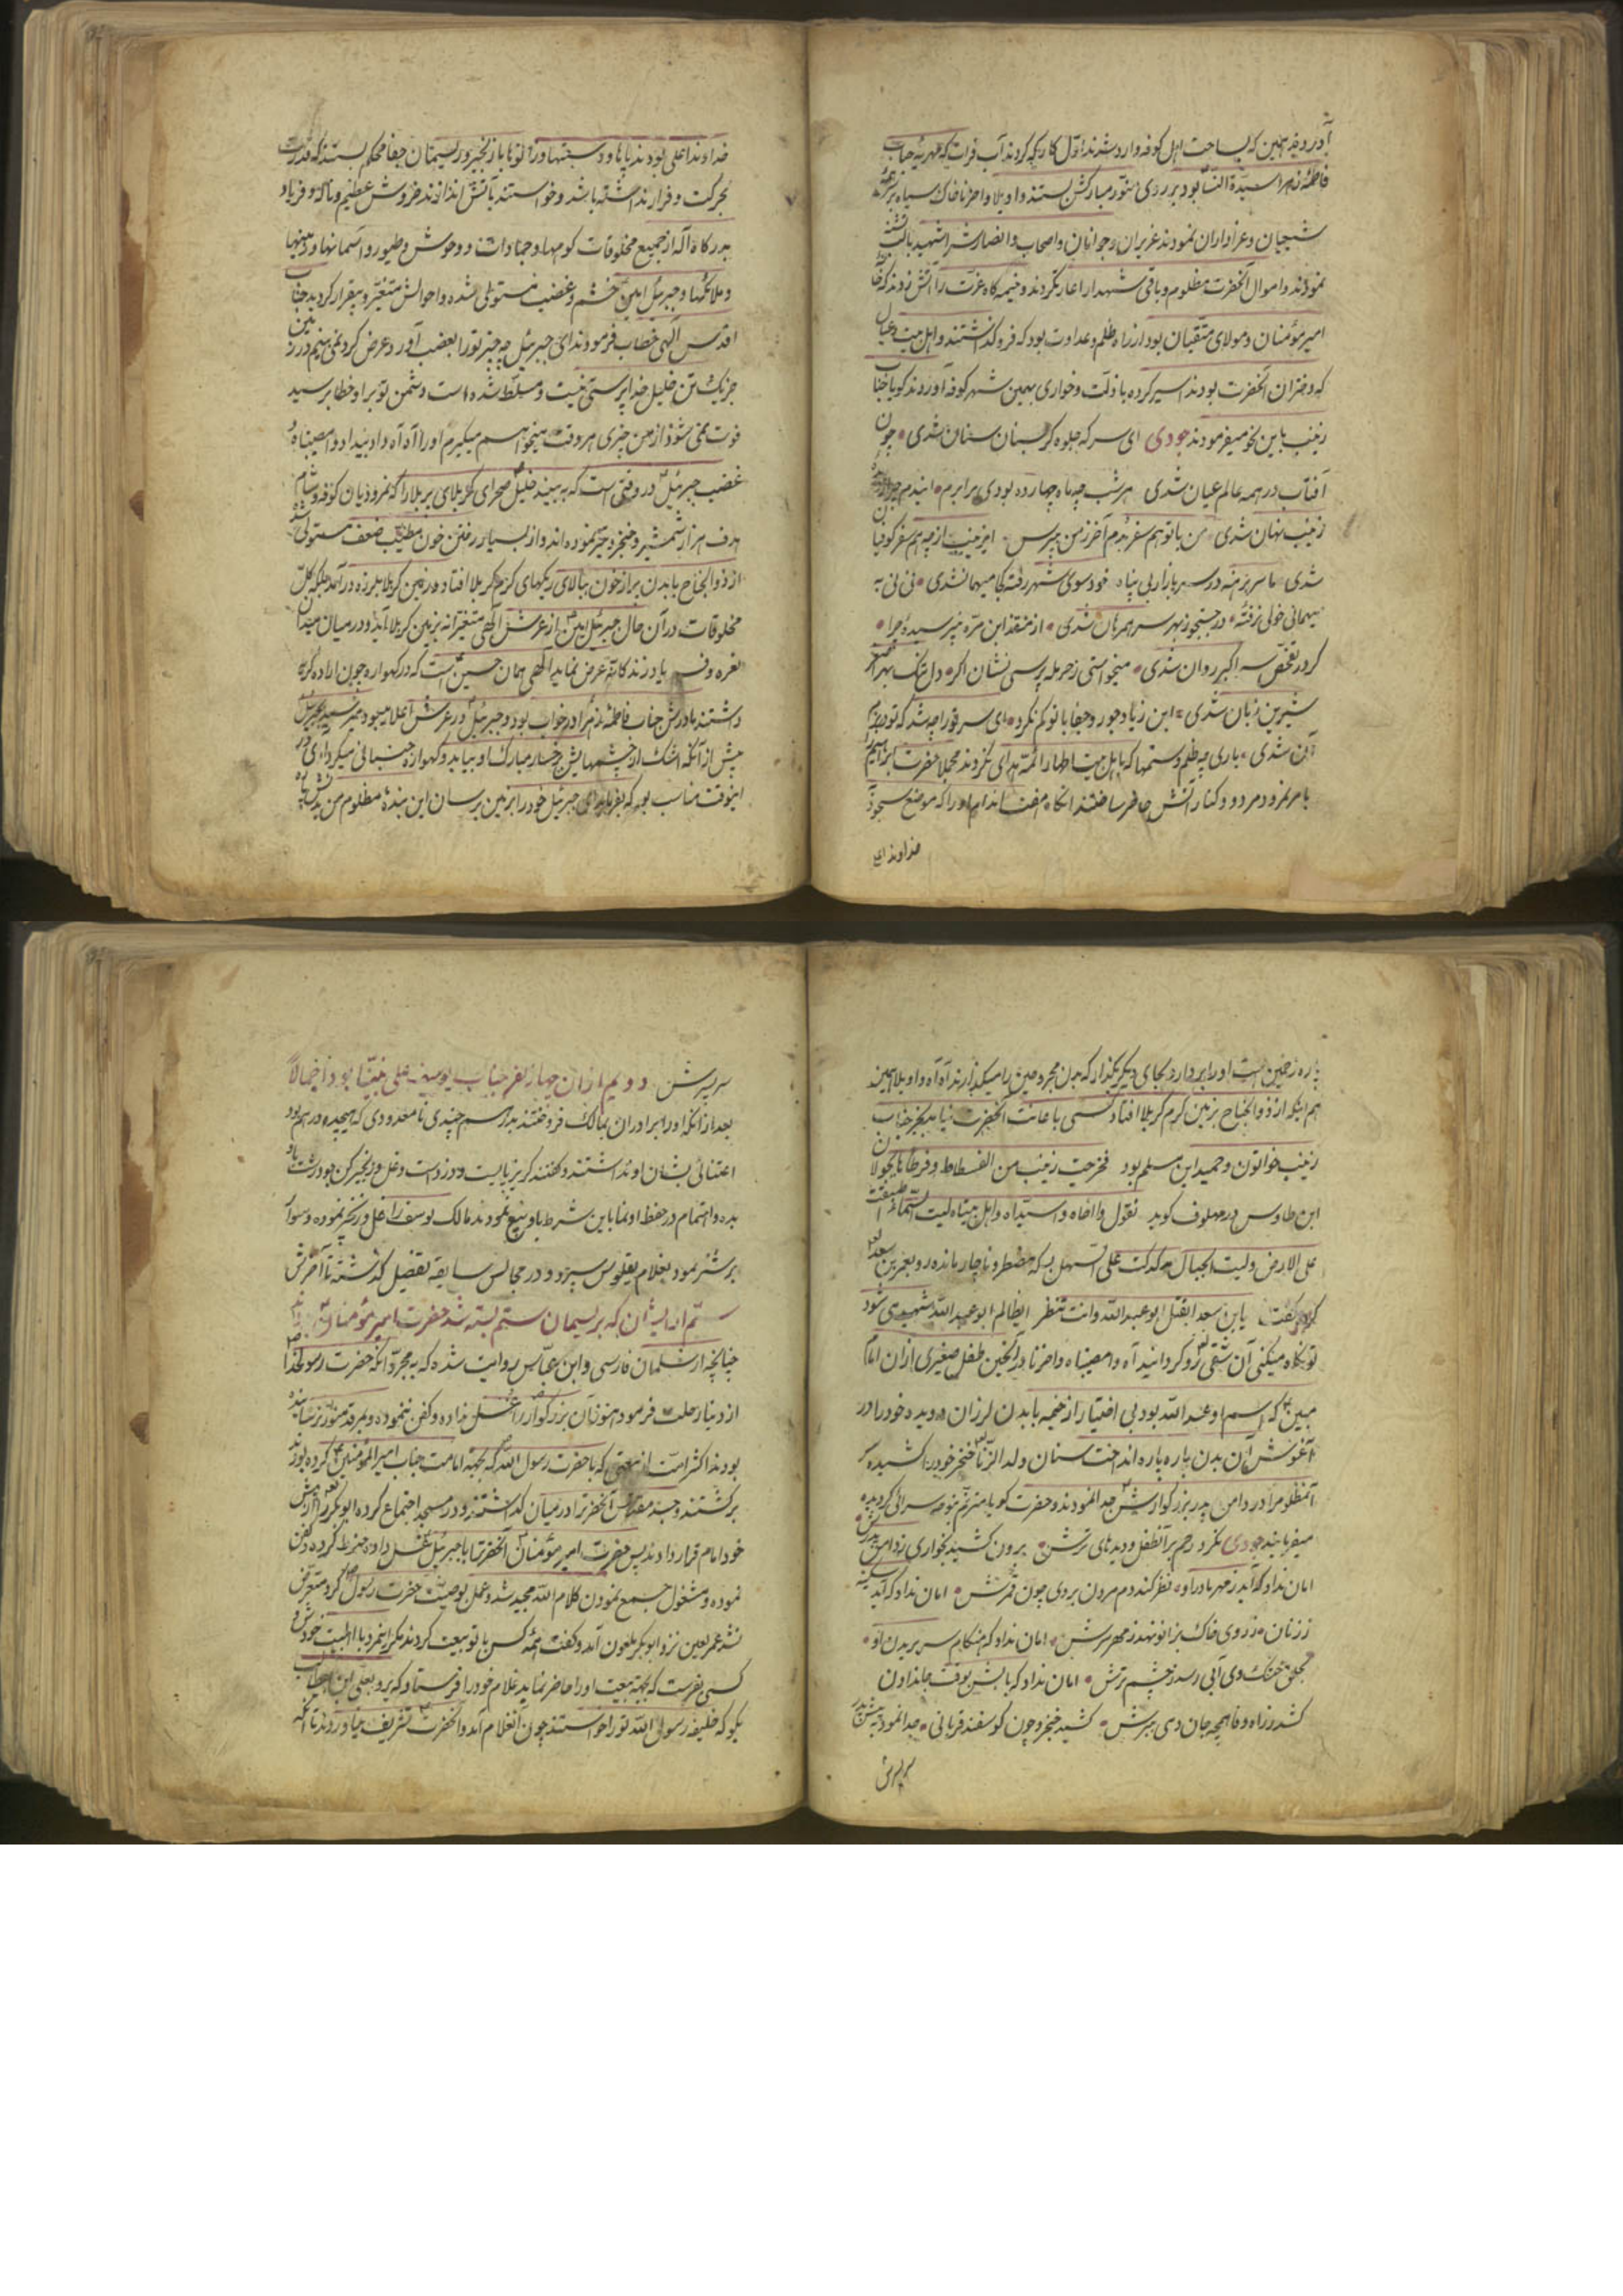 آوردند همین که بساحت اهل کوفه وارد شدند اول کاریکه کردند آب فرات که مهریه جناب
فاطمه زهرا سیدة النسا بود بر روی منور مبارکش بستند واویلا واحزنا خاک سیاه بر سر
شیعیان و عزاداران نمودند عزیزان و جوانان و اصحاب و انصارش را شهید
نمودند و اموال آنحضرت مظلوم و باقی شهدا را غارت کردند و خیمه کاه عزت را آتش زدند که
امیر مؤمنان و مولای متقیان بود از راه ظلم و عداوت بود که فرو کذاشتند و اهل بیت و عیال
که دختران آنحضرت بودند اسیر کرده با ذلت و خواری بهمین شهر کوفه آوردند کویا جناب
زینب باین نحو میفرمودند جودی ای سر که جلوه کر بسنان سنان شدی چون
آفتاب در همه عالم عیان شدی هر شب چه ماه چهارده بودی برابرم ایندم چرا
زینب نهان شدی من با تو هم سفر بدم آخر ز من مپرس ای زینب از چه هم سفر کوفیان
شدی ما سر برهنه در سر بازار بی پناه خود سوی شهر رفته کجا میهمان شدی نی نی به
میهمانی خولی نرفته در جستجو ز بهر سر همرهان شدی از منقذ ابن مره نپرسیده چرا
کر در تفحص سر اکبر روان شدی میخواستی ز حرمله پرسی نشان اکر دل تنک بهر اصغر
شیرین زبان شدی ابن زیاد جور و جفا با تو کم نکرد ای سر تو را چه شد که تو در بزم
آن شدی باری چه ظلم و ستمها که باهل بیت اطهار ائمه هدای نکردند مجملا حضرت ابراهیم را
بامر نمرود مردود و کنار آتش حاضر ساختند آنکاه هفت اندام او را که موضع سجود
خداوند اعلی
خداوند اعلی بودند پاها و دستها و زانوها با زنجیر و ریسمان جفا محکم بستند که قدرت
بحرکت و فرار نداشته باشد و خواستند بآتش اندازند خروش عظیم و ناله و فریاد
بدرکاه اله از جمیع مخلوقات کوهها و جمادات و وحوش و طیور و آسمانها و زمینها
و ملائکها و جبرئیل امین خشم و غضب مستولی شده و احوالش متغیر و بیقرار کردید جناب
اقدس الهی خطاب فرمودند ای جبرئیل چه چیز تو را بغضب آورد عرض کرد نمی بینم در زمین
جز یک تن خلیل خدا پرستی نیست و مسلط شده است دشمن تو بر او خطاب رسید
فوت نمی شود از من چیزی هر وقت میخواهم میکیرم او را آه آه داد بیداد وامصیبتاه
غضب جبرئیل در وقتی است که به بیند خلیل صحرای کربلای پر بلا را که نمرودیان کوفه و شام
هدف هزار شمشیر و خنجر و تیر نموده اند و از بسیار رفتن خون مطیب ضعف مستولی شده
از ذوالجناح با بدن پر از خون ببالای ریکهای کرم کربلا افتاد و زمین کربلا بلرزه در آمد بلکه کل
مخلوقات در آن حال جبرئیل امین از عرش الهی متغیرانه بزمین کربلا آید و در میان میدان
نعره و فریاد زند که آیه عرض نماید الهی همان حسین است که در کهواره چون اراده کریه
داشتند مادرش جناب فاطمه زهرا در خواب بود و جبرئیل در عرش اعلا میبود میرسید جبرئیل
پیش از آنکه اشک از چشمهایش برخسار مبارک او بیاید و کهواره جنبانی میکرد ای
اینوقت مناسب بود که بفرماید ای جبرئیل خود را بزمین برسان این بنده مظلوم من بدنش
پاره زخمین است او را بردار و بجای دیکر بکذار که بدن مجروحین را میکذارند آه آه واویلا همین
هم اینکه از ذوالجناح بزمین کرم کربلا افتاد کسی باعانت آنحضرت نیامد بجز جناب
زینب خواتون و حمید ابن مسلم بود فخرجت زینب من الفسطاط و قرطاها یجولان
ابن طاوس در ملهوف کوید تقول وااخاه وا سیداه وا اهل بیتاه لیت السماء اطبقت
علی الارض و لیت الجبال تدکدکت علی السهل پس که مضطر و ناچار مانده رو بعمر بن سعد
کرده و کفت یابن سعد ایقتل ابو عبدالله و انت تنظر ای ظالم ابو عبدالله شهید می شود
تو نکاه میکنی آن شقی رو کردانید آه وامصیبتاه واحزنا در آنحین طفل صغیری از ان امام
مبین که اسم او عبدالله بود بی اختیار از خیمه با بدن لرزان دویده خود را در
آغوش آن بدن پاره پاره انداخت سنان ولد الزنا خنجر خود را کشیده سر
آنمظلوم را در دامن پدر بزرکوارش جدا نمودند و حضرت کویا مترنم بنوحه سرائی کردیده
میفرمایند جودی نکرد رحم بر آنطفل و دیدهای ترش برون کشید بخواری ز دامن پدرش
امان نداد که آید ز مهر مادر او نظر کند دم مردن بروی چون قمرش امان نداد که آید سکینه
ز زنان ز روی خاک بزانو نهد ز مهر سرش امان نداد که هنکام سر بریدن او
بحلق خشک وی آبی رسد ز چشم ترش امان نداد که بابش بوقت جان دادن
کشد ز راه وفا همچه جان دمی ببرش کشید خنجر و چون کوسفند قربانی جدا نمود به پیش پدر
سر پسرش
سر پسرش دویم از ان چهار نفر جناب یوسف علی نبینا بود اجمالا
بعد از آنکه او را برادران بمالک فروختند بدرهم چندی نا معدودی که هیجده درهم بود
اعتنائی بشان او نداشتند و کفتند کریز پایست و دزد است و غل و زنجیر کن و درشت باو
بده و اهتمام در حفظ او نما باین شرط باو بیع نمودند مالک یوسف را غل و زنجیر نموده و سوار
بر شتر نمود بغلام یقلوس سپرد و در مجالس سابقه تفضیل کذشته تا آخرش
سیم از ایشان که بریسمان ستم بسته شد حضرت امیر مؤمنان بودند
چنانچه از سلمان فارسی و ابن عباس روایت شده که به مجرد آنکه حضرت رسول خدا
از دنیا رحلت فرمود هنوز آن بزرکوار را غسل نداده و کفن ننموده و بمرقد منور نرسانیده
بودند اکثر امت از بیعتی که با حضرت رسول الله که بجهة امامت جناب امیر المؤمنین کرده بودند
برکشتند و جسد مقدس آنحضرترا در میان کذاشتند و در مسجد اجتماع کرده ابوبکر را از پیش
خود امام قرار دادند پس حضرت امیر مؤمنان آنحضرترا با جبرئیل غسل داده حنوط کرده و کفن
نموده و مشغول جمع نمودن کلام الله مجید شد و عمل بوصیت حضرت رسول کرد متعرض
نشد عمر لعین نزد ابوبکر ملعون آمد و کفت همه کس با تو بیعت کردند مکر اینمرد با اهل بیت خودش
کسی بفرست که بجهة بیعت او را حاضر نماید غلام خود را فرستاد که برو بعلی ابن ابیطالب
بکو که خلیفه رسول الله تو را خواستند چون آنغلام آمد و آنحضرت تشریف نیاوردند تا آنکه